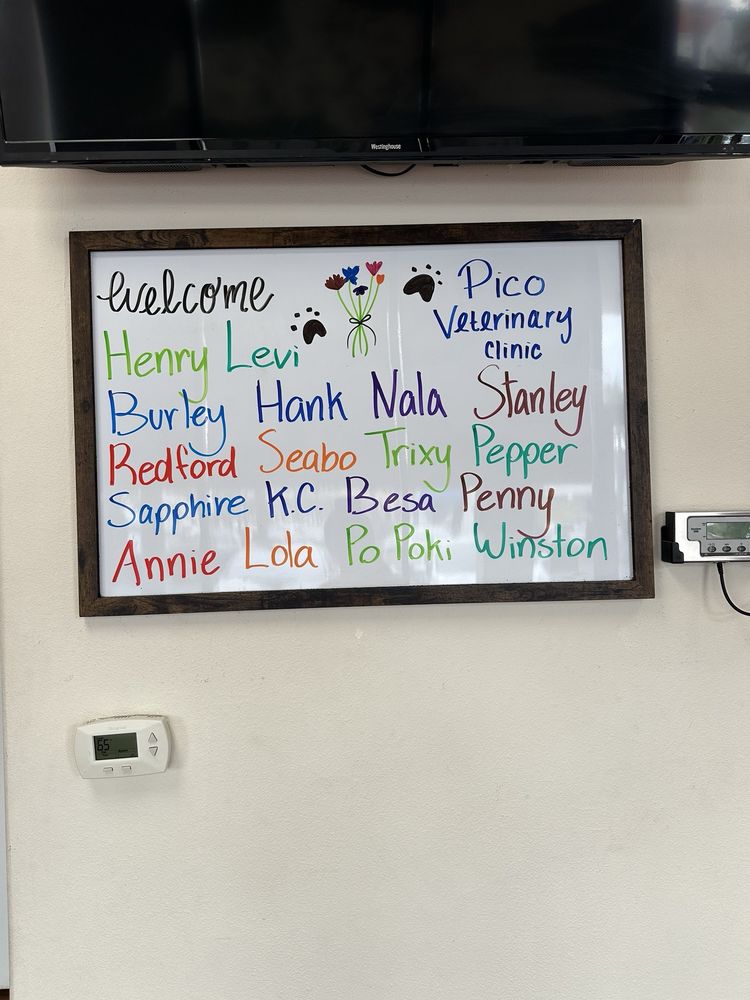 Westinghouse
welcome
Pico
Veterinary
Clinic
Henry Levi
Burley Hank Nala Stanley
Redford Seabo Trixy Pepper
Sapphire K.C. Besa Penny
Annie Lola Po Poki Winston
65